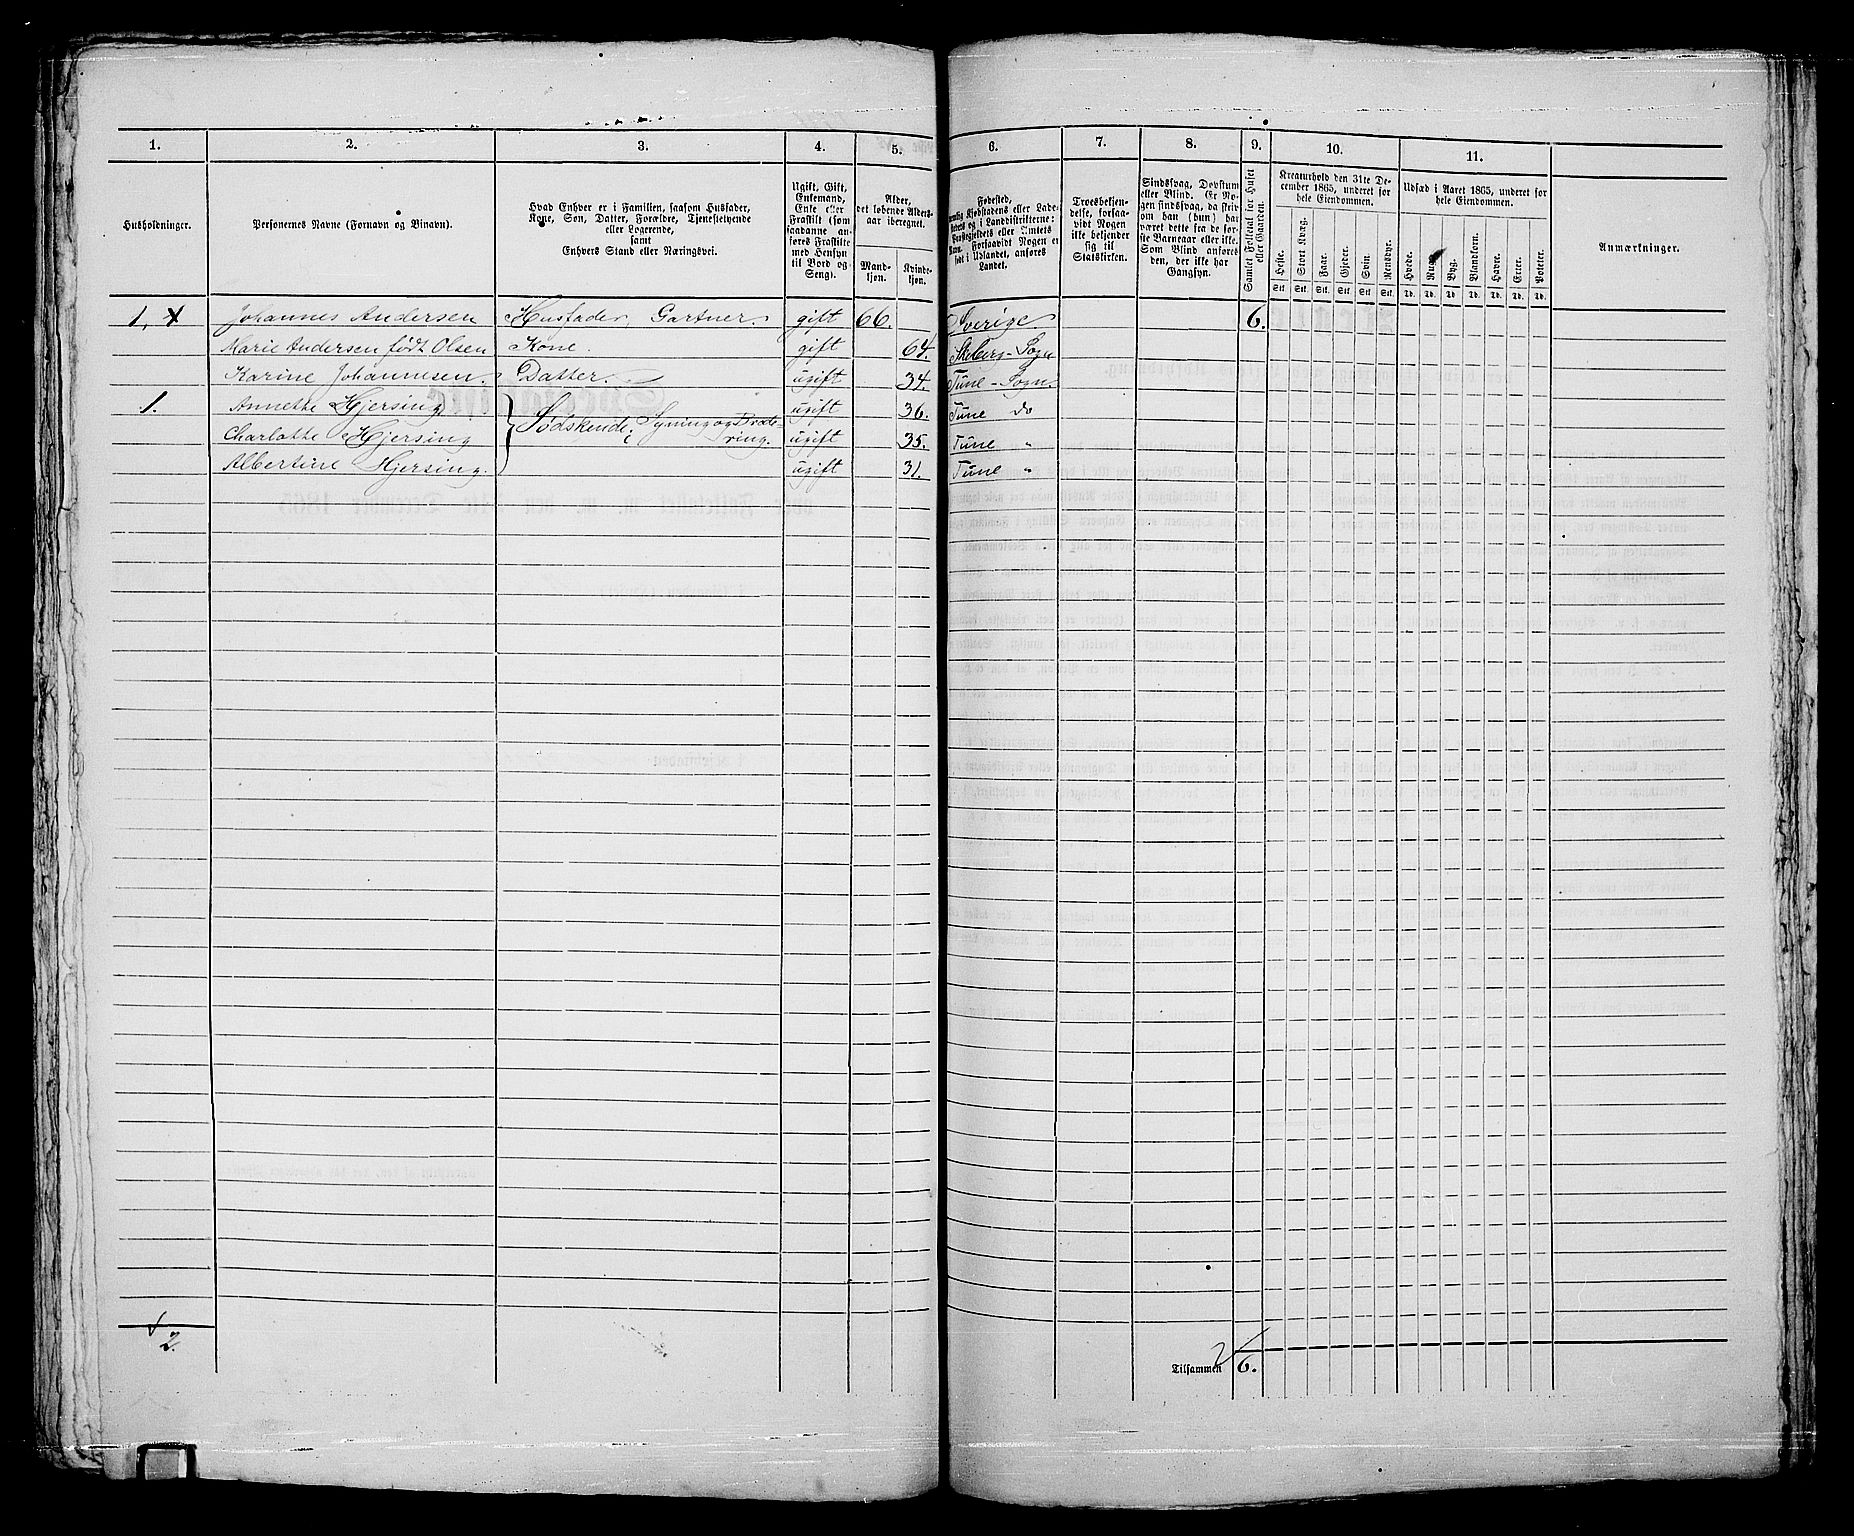 1. 2. 3. 4. 5. 6. 7. 8. 9. 10. 11.
Husholdninger.
Personernes Navne (Fornavn og Binavn).
Hvad Enhver er i Familien, saasom Husfader,
Kone, Søn, Datter, Forældre, Tjenestetyende
eller Logerende,
samt
Enhvers Stand eller Næringsvei.
Ugift, Gift,
Enkemand,
Enke eller
Fraskilt (som
saadanne an-
føres Fraskilte
med Hensyn
til Bord og
Seng).
Alder,
det løbende Alders-
aar iberegnet.
Mand-
kjøn.
Kvinde-
kjøn.
Fødested,
Kjøbstadens eller Lade-
stedets og i Landdistrikterne:
Præstegjeldets eller Amtets
Navn. Forsaavidt Nogen er
født i Udlandet, anføres
Landet.
Troesbekjen-
delse, forsaa-
vidt Nogen
ikke bekjender
sig til
Statskirken.
Sindssvag, Døvstum
eller Blind. Er No-
gen sindssvag, da skriv
om han (hun) har
været dette fra de før-
ste Barneaar eller ikke.
Som Blind anføres
den, der ikke har
Gangsyn.
Samlet Folketal for Huset
eller Gaarden.
Kreaturhold den 31te De-
cember 1865, underet for
hele Eiendommen.
Heste. Stort Kvæg. Faar. Gjeder. Svin. Rensdyr.
Stk. Stk. Stk. Stk. Stk. Stk.
Udsæd i Aaret 1865, underet for
hele Eiendommen.
Hvede. Rug. Byg. Blandkorn. Havre. Erter. Poteter.
Td. Td. Td. Td. Td. Td. Td.
Anmærkninger.
1. Johannes Andersen Husfader, Gartner. gift 66. Sverige 6.
Marie Andersen født Olsen Kone. gift 64. Skeberg-Sogn
Karine Johannesen. Datter. ugift 34. Tune-Sogn.
1. Annette Hjersing ugift 36. Tune do
Charlotte Hjersing Sødskende; Syning og Brode-
ring. ugift 35. Tune "
Albertine Hjersing. ugift 31. Tune "
2.
Tilsammen 6.